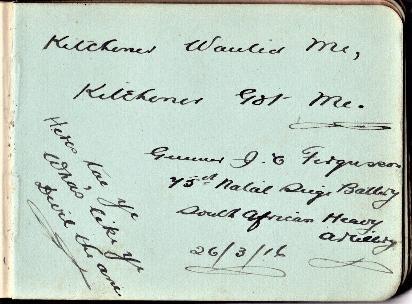 Kitchener Wanted Me,
Kitchener Got Me.
Gunner J. C Ferguson
75th Natal Siege Battery
South African Heavy
Artillery
26/3/16
Heres tae ye
Whas like ye
Devil the ane